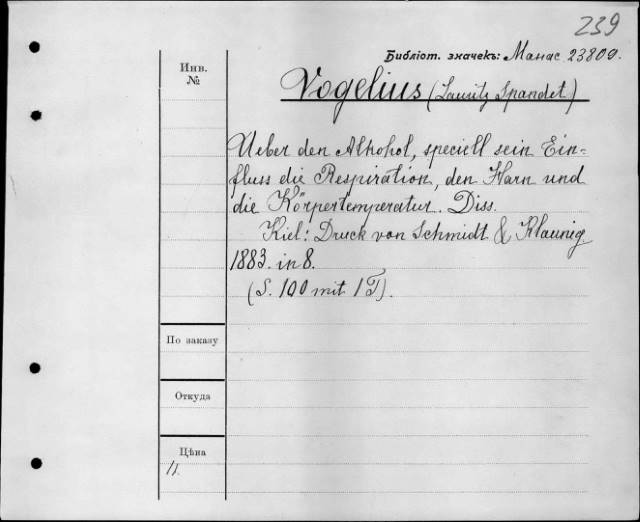 239
Библіот. значекъ: Манас 23809.
Инв.
№
Vogelius (Lauritz Spandet)
Ueber den Alkohol, speciell sein Ein=
fluss die Respiration, den Harn und
die Körpertemperatur. Diss.
Kiel: Druck von Schmidt & Klaunig.
1883. in 8.
(S. 100 mit 1 T).
По заказу
Откуда
Цѣна